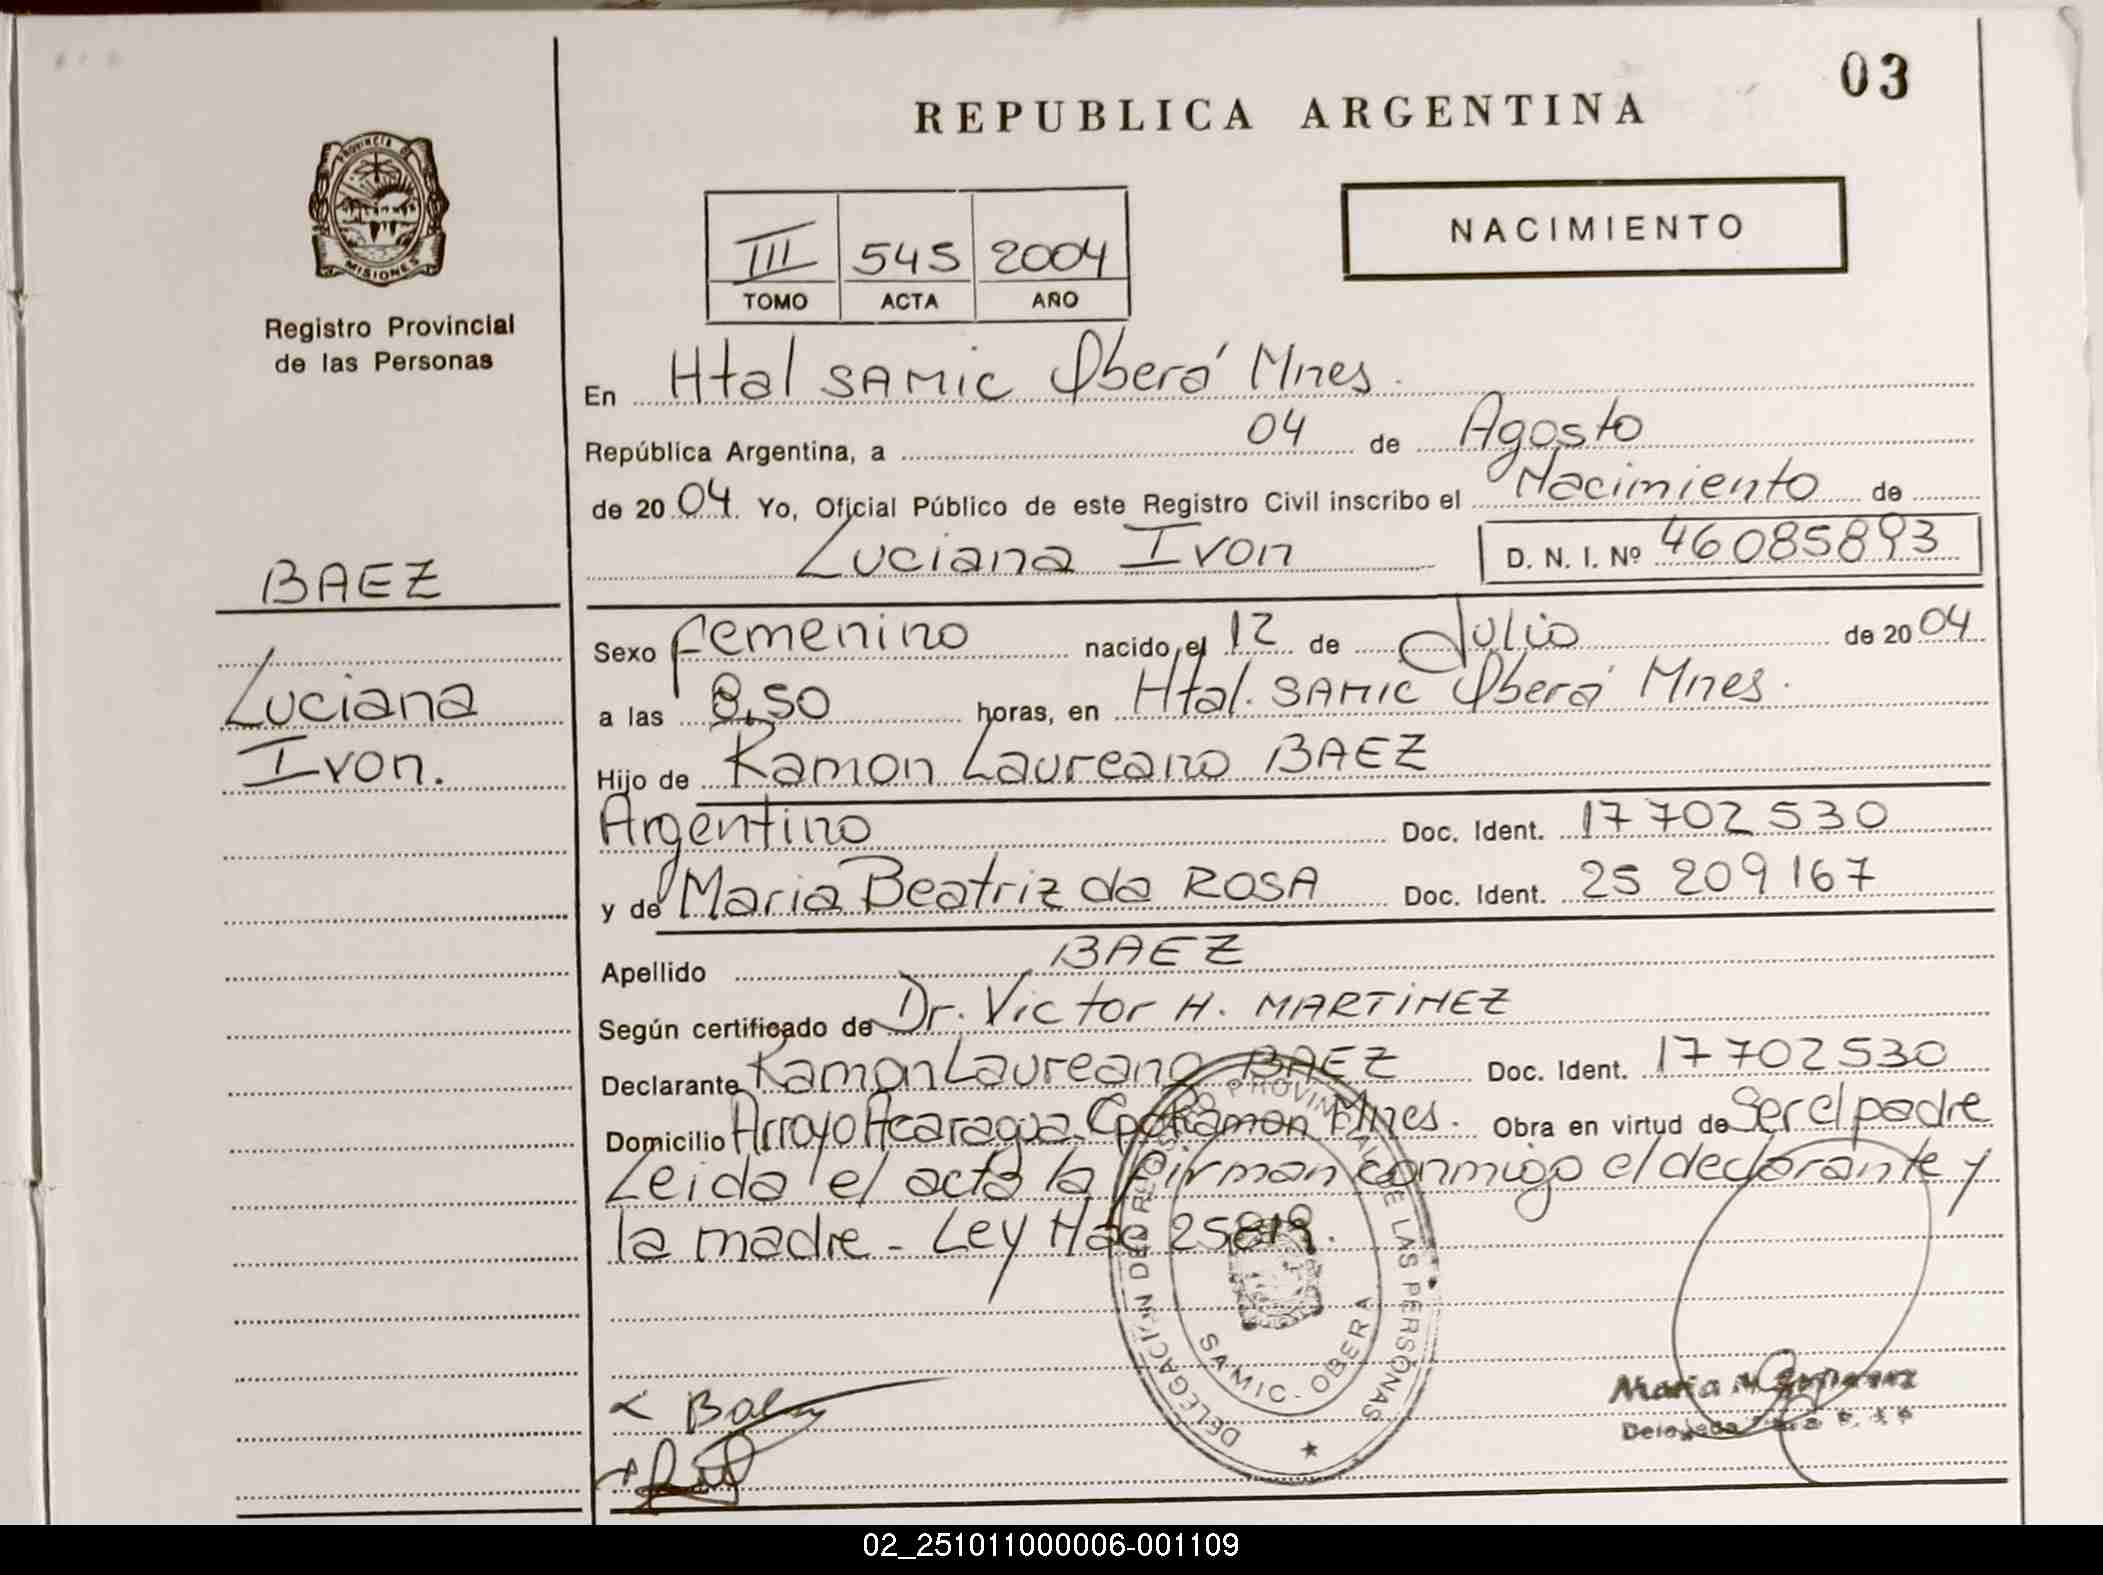 03
REPUBLICA ARGENTINA
PROVINCIA DE
MISIONES
Registro Provincial
de las Personas
NACIMIENTO
III 545 2004
TOMO ACTA AÑO
En Htal SAMIC Oberá Mnes.
República Argentina, a 04 de Agosto
de 2004. Yo, Oficial Público de este Registro Civil inscribo el Nacimiento de
Luciana Ivon D. N. I. Nº 46085893
BAEZ
Luciana
Ivon.
Sexo femenino nacido el 12 de Julio de 2004
a las 8,50 horas, en Htal. SAMIC Oberá Mnes.
Hijo de Ramon Laureano BAEZ
Argentino Doc. Ident. 17 702 530
y de Maria Beatriz da ROSA Doc. Ident. 25 209 167
Apellido BAEZ
Según certificado de Dr. Victor H. MARTINEZ
Declarante Ramon Laureano BAEZ Doc. Ident. 17 702530
Domicilio Arroyo Acaragua Cpo Ramon Mnes. Obra en virtud de Ser el padre
Leida el acta la firman conmigo el declarante y
la madre - Ley Nac 25819.
DELEGACION DEL REGISTRO PROVINCIAL DE LAS PERSONAS
SAMIC - OBERA
Maria
Delegada
02_251011000006-001109